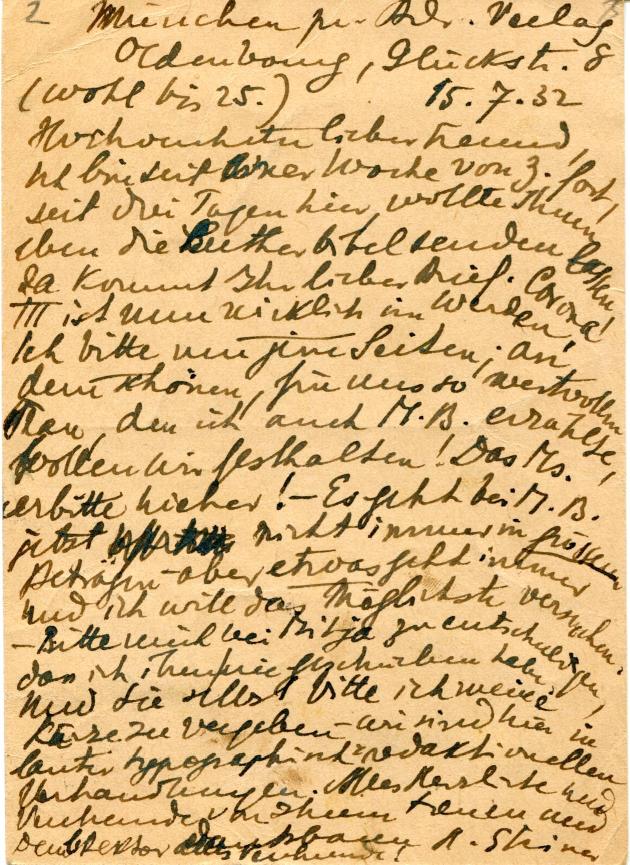 2
München pr. Adr. Verlag
Oldenbourg, Glückstr. 8
(wohl bis 25.) 15.7.32
Hochverehrter lieber Freund,
ich bin seit einer Woche von Z. fort,
seit drei Tagen hier, wollte Ihnen
eben die Lutherbibel senden lassen
da kommt Ihr lieber Brief. Corona
III ist nun wirklich im Werden!
Ich bitte um Seiten; an
dem schönen, für uns so wertvollen
Plan, den ich auch M.B. erzählte,
wollen wir festhalten! Das Ms.
erbitte hieher! – Es geht bei M.B.
jetzt nicht immer in grossen
Beträgen – aber etwas geht immer
und ich will das Möglichste versuchen.
– Bitte mich bei zu entschuldigen,
dass ich ihm nie geschrieben habe,
und Sie selbst bitte ich meine
Kürze zu vergeben – wir sind hier in
lauter typographisch-redaktionellen
Verhandlungen. Alles Herzliche und
Verehrende von Ihrem treuen und
dankbaren